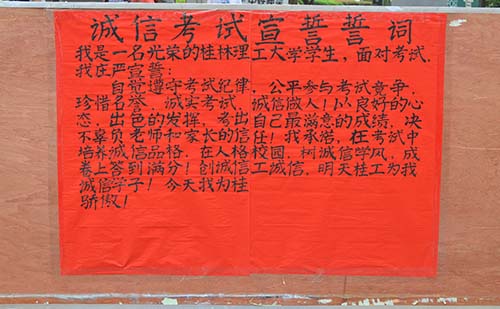 诚信考试宣誓誓词
我是一名光荣的桂林理工大学学生，面对考试，
我庄严宣誓：
自觉遵守考试纪律，公平参与考试竞争，
珍惜名誉，诚实考试，诚信做人！以良好的心
态，出色的发挥，考出自己最满意的成绩，决
不辜负老师和家长的信任！我承诺，在考试中
培养诚信品格，在人格校园，树诚信学风，成
卷上答到满分！创诚信工诚信，明天桂工为我
诚信学子！今天我为桂
骄傲！